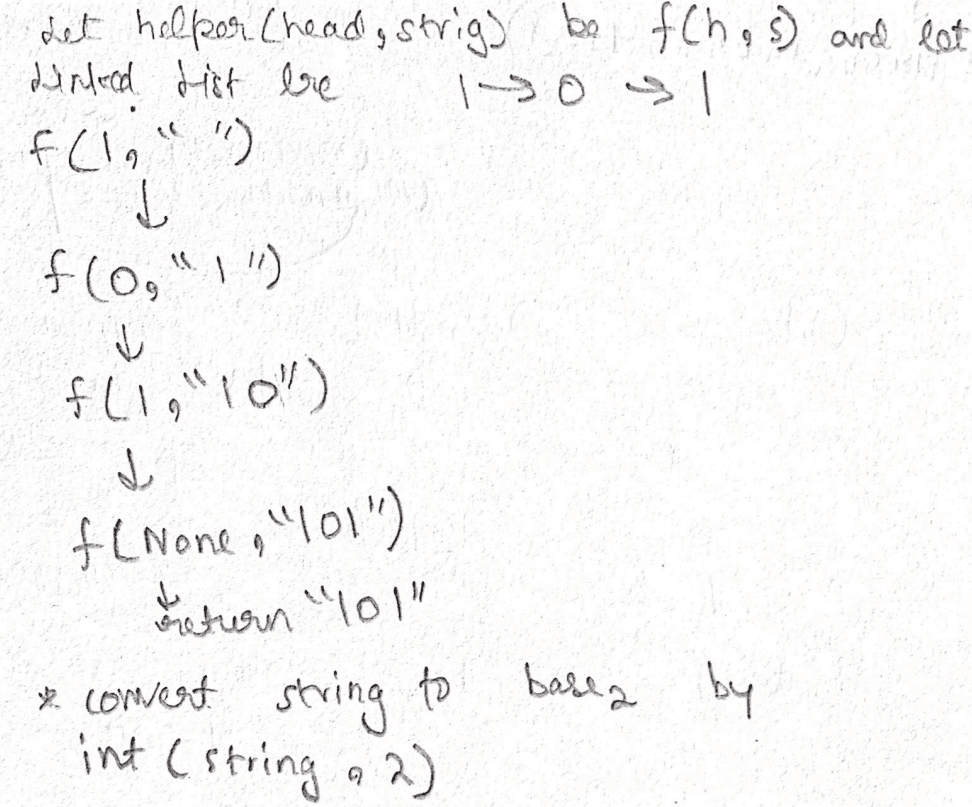 Let helper (head, strig) be f(h, s) and let
Linked List be 1 → 0 → 1
f(1, " ")
↓
f(0, "1")
↓
f(1, "10")
↓
f(None, "101")
↓
return "101"
* convert string to base 2 by
int (string, 2)